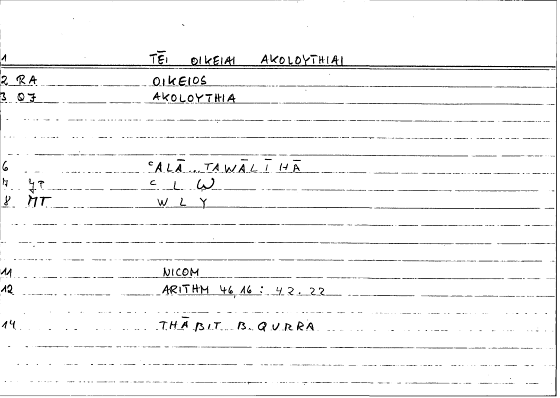 1 TĒI OIKEIAI AKOLOYTHIAI
2 RA OIKEIOS
3 OJ AKOLOYTHIA
6 ʿALĀ .. TAWĀLĪHĀ
7 JT ʿ L W
8 MT W L Y
11 NICOM
12 ARITHM 46,16 : 42.22
14 THĀBIT B. QURRA